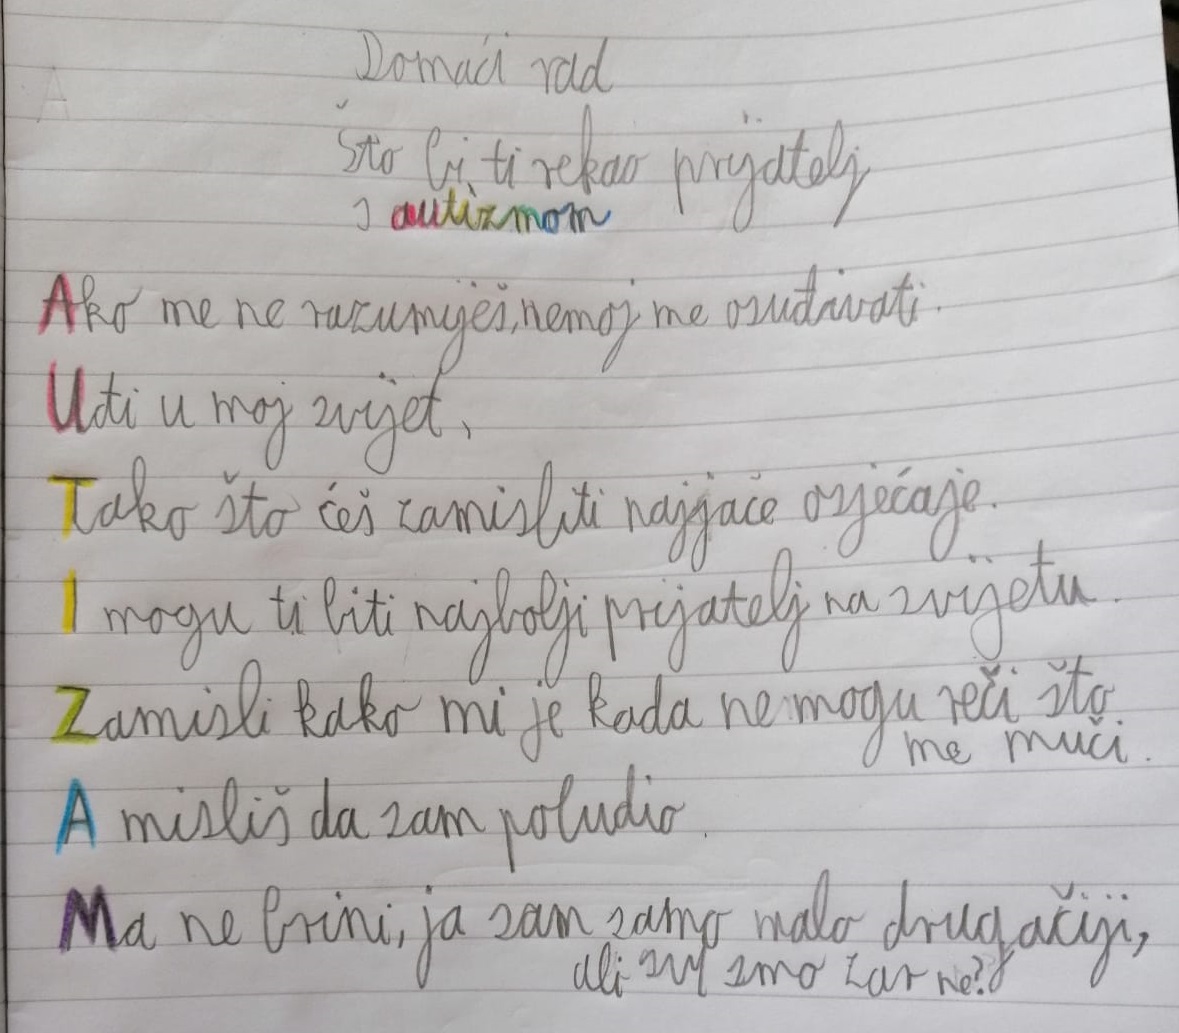 Domaći rad
Što bi ti rekao prijatelj
s autizmom
Ako me ne razumiješ, nemoj me osuđivati.
Uđi u moj svijet,
Tako što ćeš zamisliti najjače osjećaje.
I mogu ti biti najbolji prijatelj na svijetu.
Zamisli kako mi je kada ne mogu reći što
me muči.
A misliš da sam poludio.
Ma ne brini, ja sam samo malo drugačiji,
ali svi smo zar ne?